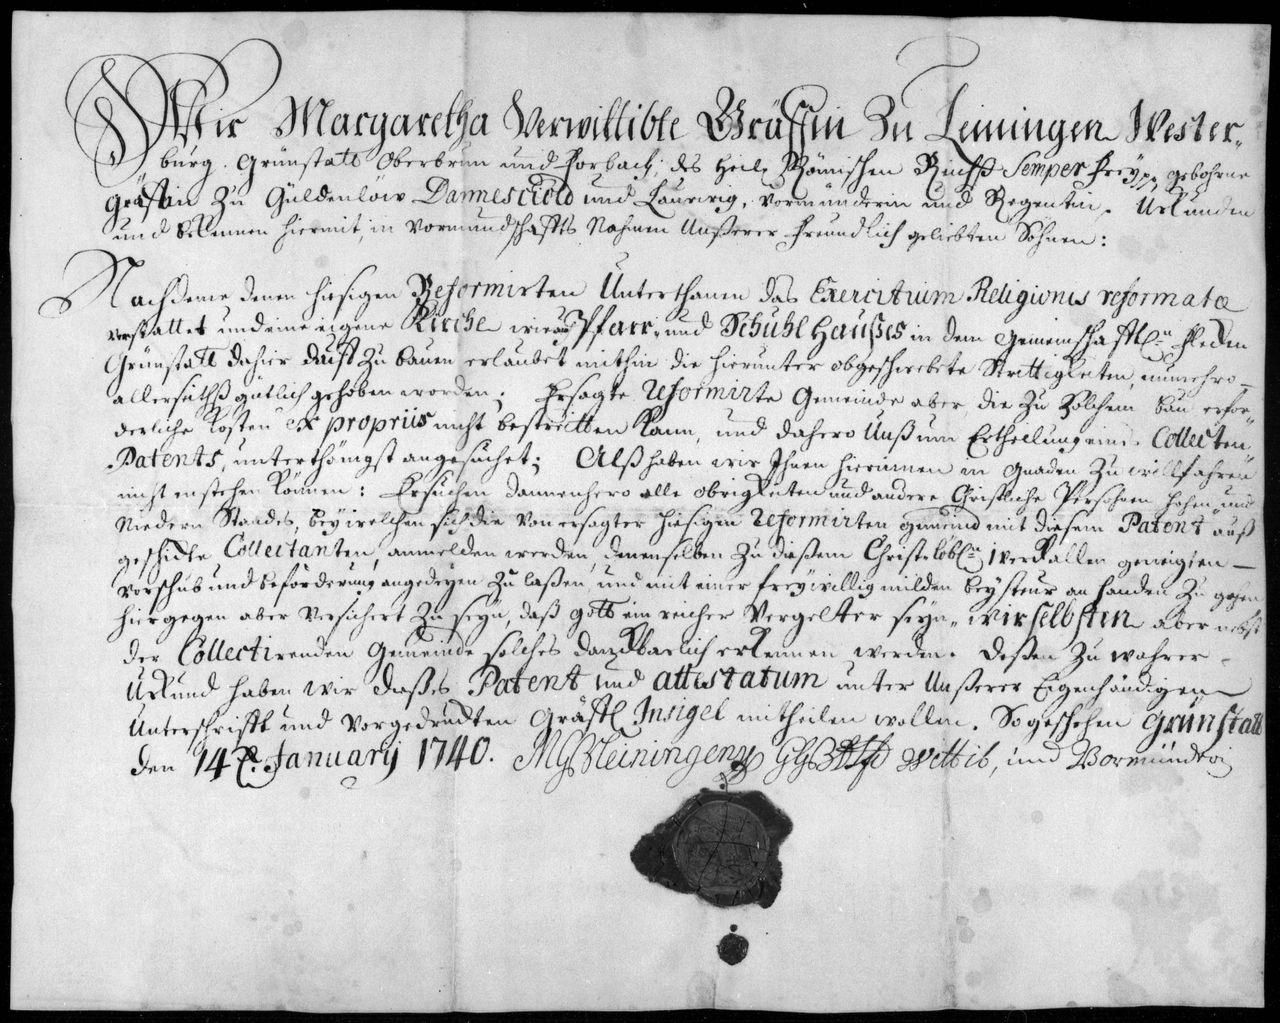 Wir Margaretha Verwittibte Gräffin Zu Leiningen Wester-
burg, Grünstatt Oberbrun und Forbach, des Heil. Römischen Reichs Semper Frey pp. gebohrne
Gräffin Zu Güldenlöw Dannesciold und Laurwig, Vormünderin und Regentin. Urkunden
und bekennen hiermit, in Vormundschaffts Nahmen Unßerer freundlich geliebten Söhnen:
Nachdeme denen hiesigen Reformirten Unterthanen das Exercitium Religionis reformatæ
verstattet und eine eigene Kirche wie auch Pfarr, und Schuhl Haußes in dem Gemeinschafftl.n Flecken
Grünstatt dahier Zu bauen erlaubet mithin die hierunter obgeschwebete Strittigkeiten, nunehro
allerseiths gütlich gehoben worden; Ersagte reformirte Gemeinde aber die Zu Solchem bau erfor-
derliche Kosten ex propriis nicht bestreitten kann, und dahero Unß um Ertheilung eines Collecten
Patents, unterthänigst angesuchet; Alß haben wir Ihnen hierinnen in Gnaden Zu willfahren
nicht entstehen können: Ersuchen dannenhero alle Obrigkeiten und andere Christliche Persohnen hohen und
Niedern Standes, bey welchen sich die von ersagter hiesigen reformirten Gemeind mit diesem Patent auß
geschickte Collectanten, anmelden werden, denenselben Zu dießem Christ-löbl.n Werck allen geneigten
Vorschub und beförderung angedeyen Zu laßen, und mit einer freywillig milden beysteur an Handen Zu gehen
hiergegen aber versichert Zu seyn, daß Gott ein reicher Vergelter seyn, wir selbsten aber nebst
der Collectirenden Gemeinde solches danckbarlich erkennen werden. Deßen Zu wahrer
Urkund haben wir dießes Patent und attestatum unter Unßerer Eigenhändigen
Unterschrifft und vorgedruckten Gräffl. Insigel mittheilen wollen. So geschehen Grünstatt
den 14t. January 1740. MGZLeiningen wittib, und Vormünderin